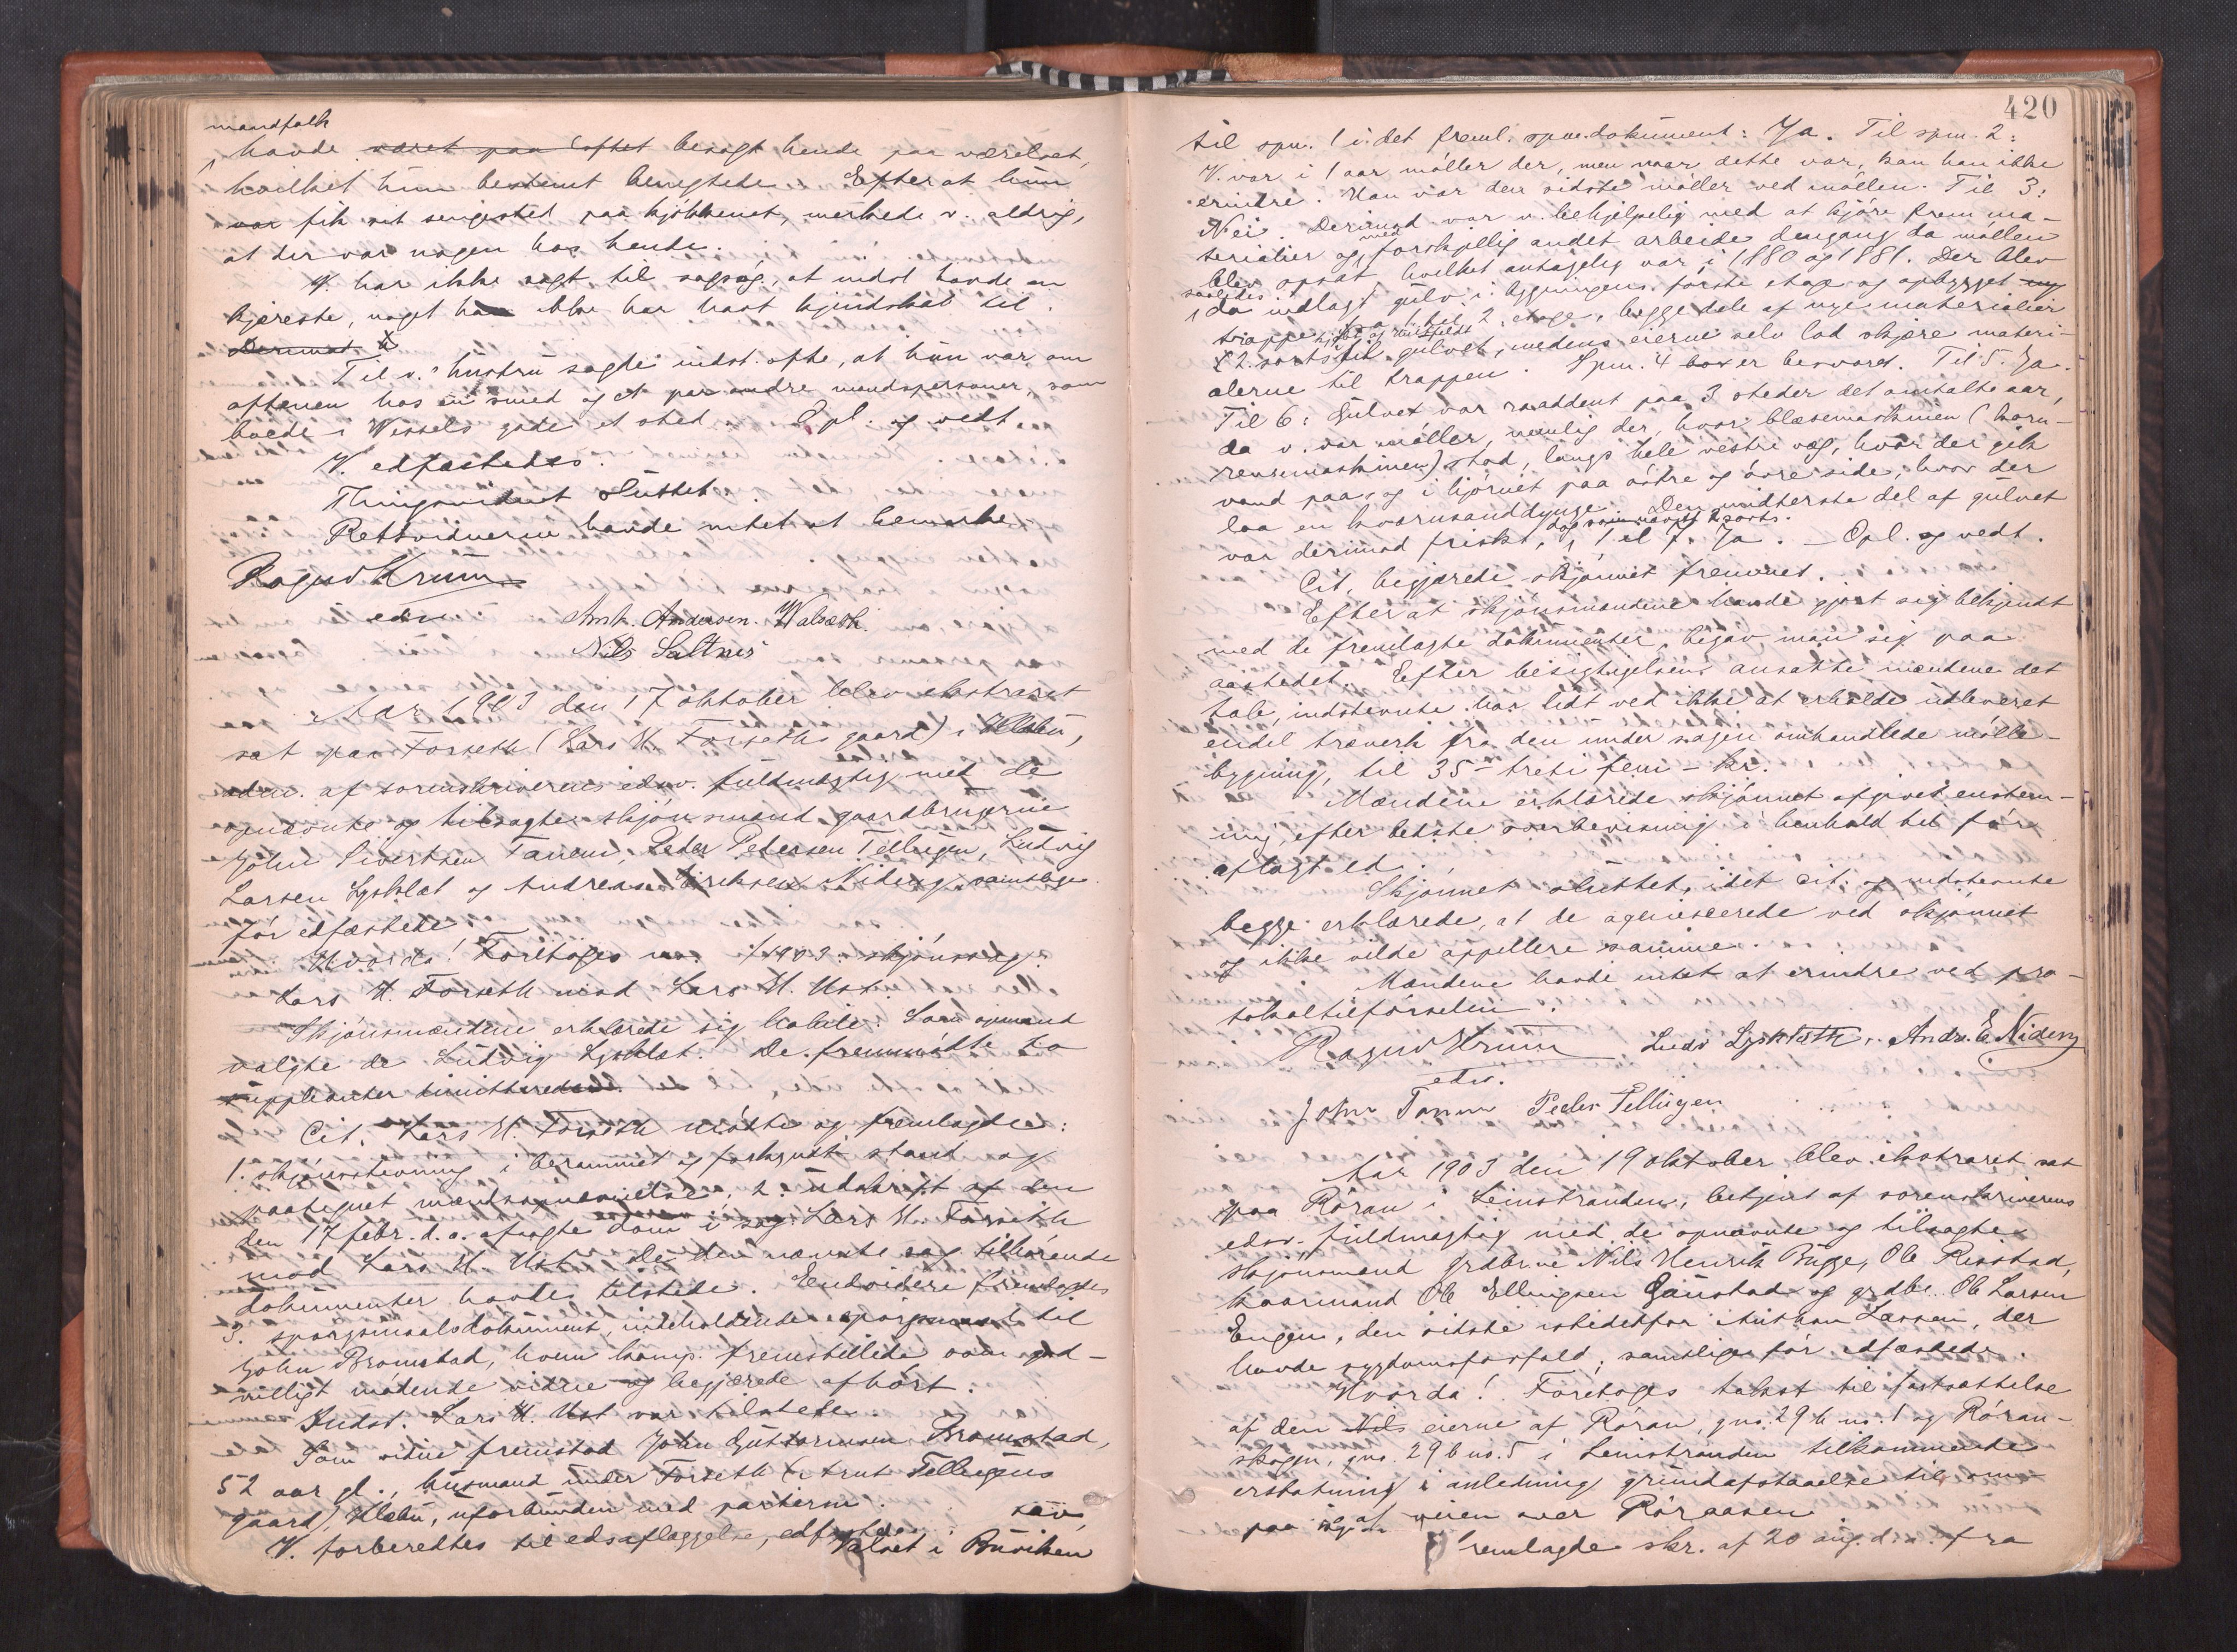 mandfolk
havde været paa loftet besøgt hende paa værelset,
hvilket hun bestemt benegtede. Efter at hun
var fik sit sengested paa kjøkkenet, merkede v. aldrig,
at der var nogen hos hende.
V. har ikke sagt til sagsøg., at indst. havde en
kjæreste, noget han ikke har havt kjendskab til.
Derimod
Til v.s hustru sagde indst. ofte, at hun var om
aftenen hos en smed og et par andre mandspersoner, som
boede i Wessels gade et sted. Opl. og vedt.
V. edfæstedes.
Thingsvidnet sluttet.
Rettsvidnerne havde intet at bemerke.
Ragnv Krum
edsv Anth. Andersen. Walseth.
Nils Saltnes
Aar 1903 den 17 oktober blev ekstraret
sat paa Forseth (Lars H. Forseths gaard) i Klæbu,
adm. af sorenskriverens edsv. fuldmægtig med de
opnævnte og tilsagte skjønsmænd gaardbrugerne
John Sivertsen Tanem, Peder Petersen Tellugen, Ludvig
Larsen Lysklæt og Andreas Eriksen Nideng, samtlige
før edfæstede.
Hvorda! Foretoges no. /1903 skjønssag:
Lars H. Forseth mod Lars H. Ust.
Skjønsmændene erklærede sig habile. Som opmand
valgte de Ludvig Lysklæt. De fremmødte to
supplianter dimitteredes.
Cit. Lars H. Forseth mødte og fremlagde:
1. skjønsstevning i berammet og forkyndt stand og
paategnet mændsopnævnelse, 2. udskrift af den
den 17 febr. d. a. afsagte dom i sag Lars H. Forseth
mod Lars H. Ust. De den nævnte sag tilhørende
dokumenter havdes tilstede. Endvidere fremlagdes
3. spørgsmaalsdokument, indeholdende spørgsmaal til
John Bromstad, hvem komp. fremstillede som god-
villigt mødende vidne og begjærede afhørt.
Indst. Lars H. Ust var tilstede.
Som vidne fremstod John Guttormsen Bromstad,
52 aar gl., husmand under Forseth (Arnt Tellugens
gaard), Klæbu, uforbunden med parterne.
V. forberedtes til edsaflæggelse, edfæstedes. sav
Valset i Buviken
420
til spm. 1 i det freml. spm.dokument: Ja. Til spm. 2:
V. var i 1 aar møller der, men naar dette var, kan han ikke
erindre. Han var den sidste møller ved møllen. Til 3:
Nei. Derimod var v. behjelpelig med at kjøre frem ma-
terialier og med forskjellig andet arbeide dengang da møllen
blev opsat, hvilket antagelig var i 1880 og 1881. Der blev
saaledes da indlagt gulv i bygningens første etage og opbygget ny
trappe til 2. etage, begge dele af nye materialier
2. sorts til gulvet, medens eierne selv lod skjære materi-
alerne til trappen. Spm. 4 er besvaret. Til 5. Ja.
Til 6: Gulvet var raaddent paa 3 steder det omtalte aar,
da v. var møller, nemlig der, hvor blæsemaskinen (korn-
rensemaskinen) stod, langs hele vestre væg, hvor der gik
vand paa, og i hjørnet paa østre og øvre side, hvor der
laa en kværnsanddynge. Den midterste del af gulvet
var derimod friskt, dog som nævnt 2 sorts. Til 7. Ja. – Opl. og vedt.
Cit. begjærede skjønnet fremmet.
Efter at skjønsmændene havde gjort sig bekjendt
med de fremlagte dokumenter, begav man sig paa
aastedet. Efter besigtigelsen ansatte mændene det
tab, indstevnte har lidt ved ikke at erholde udleveret
endel træverk fra den under sagen omhandlede mølle-
bygning, til 35 – treti fem – kr.
Mændene erklærede skjønnet afgivet enstem-
mig, efter bedste overbevisning i henhold til før
aflagt ed.
Skjønnet sluttet, idet cit. og indstevnte
begge erklærede, at de agviescerede ved skjønnet
og ikke vilde appellere samme.
Mændene havde intet at erindre ved pro-
tokoltilførselen.
Ragnv Krum Ludv Lysklæth. Andr. E Nideng
edsv.
John Tanem Peder Tellugen
Aar 1903 den 19 oktober blev ekstraret sat
paa Røran i Leinstranden, betjent af sorenskriverens
edsv. fuldmægtig med de opnævnte og tilsagte
skjønsmænd grdbrne Nils Henrik Bugge, Ole Risstad,
kaarmand Ole Ellingsen Gaustad og grdbr. Ole Larsen
Engen, den sidste istedetfor Larsen, der
havde sygdomsforfald; samtlige før edfæstede.
Hvorda! Foretoges takst til fastsættelse
af den Nils eierne af Røran, gno. 29 b no. 1 og Røran-
skogen, gno. 29 b no. 5 i Leinstranden tilkommende
erstatning i anledning grundafstaaelse til om-
paa af veien over Røraasen.
Fremlagde skr. af 20 aug. d. a. fra